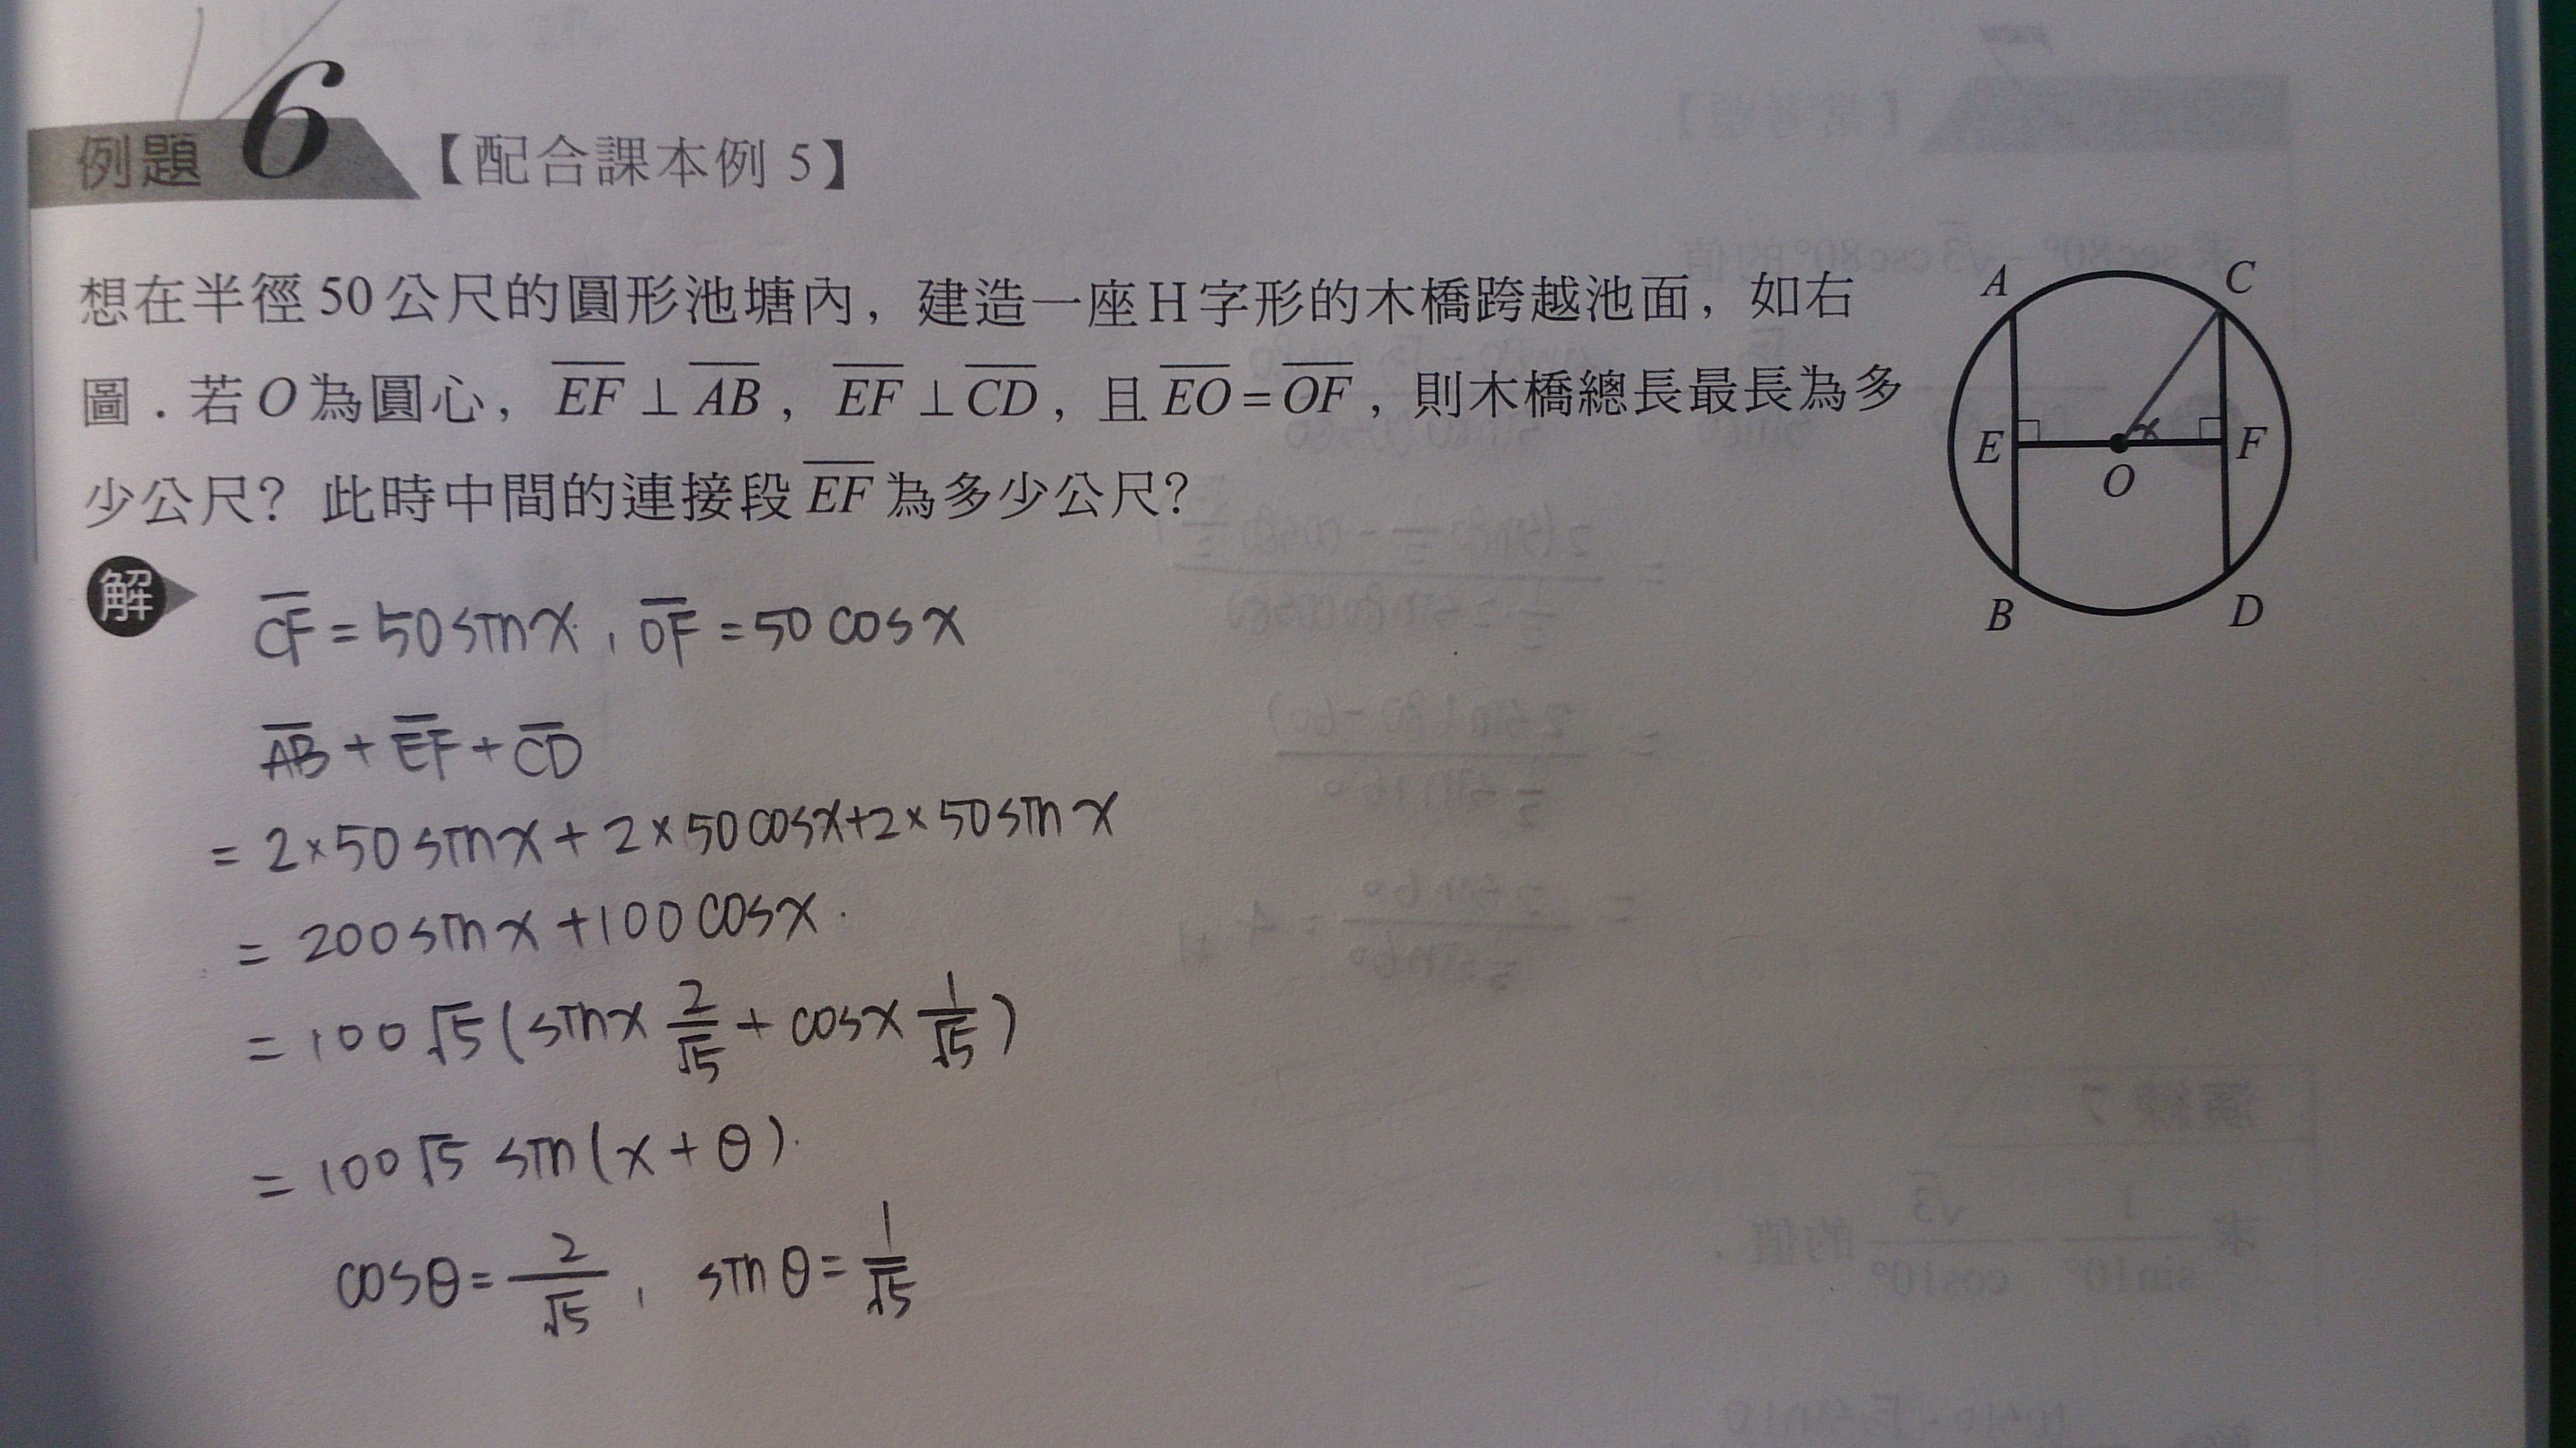 例題 6 【配合課本例 5】
想在半徑 50 公尺的圓形池塘內，建造一座 H 字形的木橋跨越池面，如右
圖．若 O 為圓心，EF ⊥ AB，EF ⊥ CD，且 EO = OF，則木橋總長最長為多
少公尺？此時中間的連接段 EF 為多少公尺？
A C
E O x F
B D
解
CF = 50 sin x , OF = 50 cos x
AB + EF + CD
= 2×50 sin x + 2×50 cos x + 2×50 sin x
= 200 sin x + 100 cos x .
= 100√5 ( sin x 2/√5 + cos x 1/√5 )
= 100√5 sin( x + θ ) .
cos θ = 2/√5 , sin θ = 1/√5
演練 7
求 1/sin10° - √3/cos10° 的值．
【常考題】
求 sec80° - √3 csc80° 的值